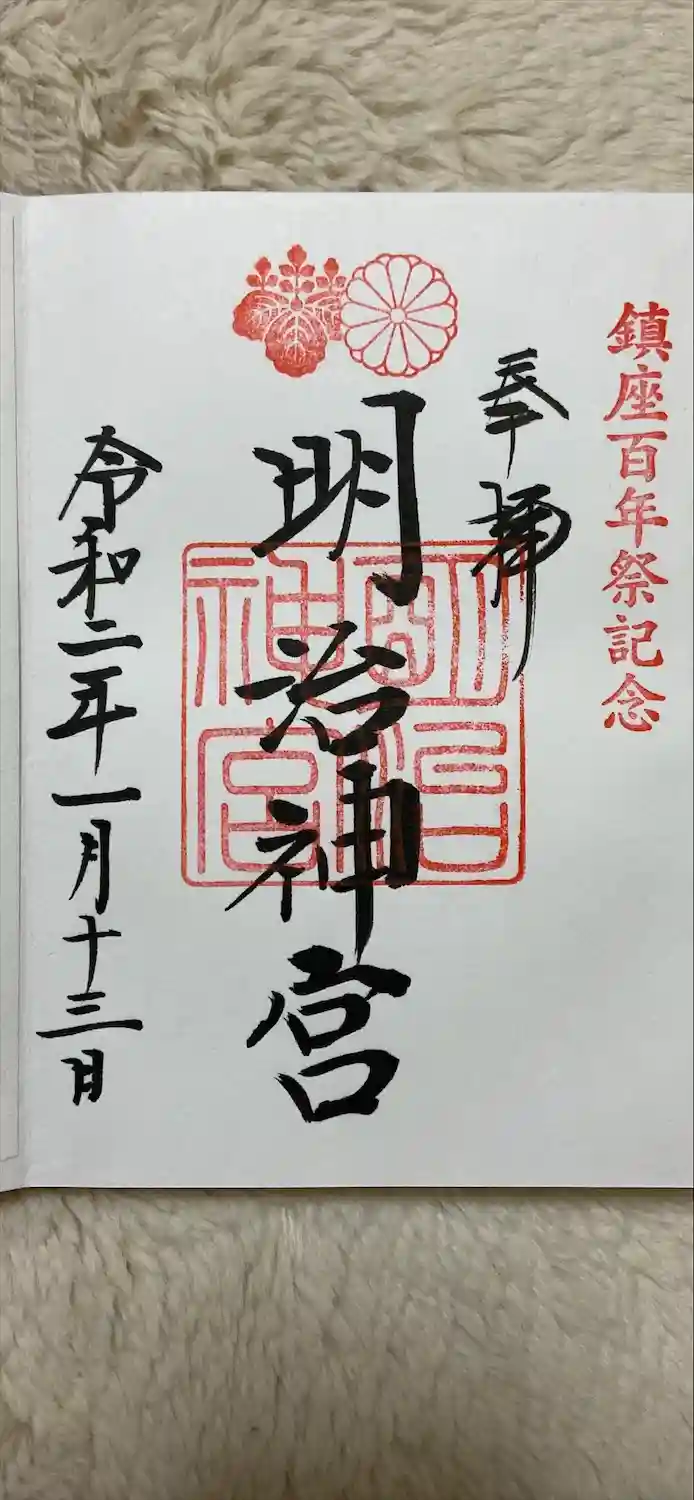 鎮座百年祭記念
奉拝
明治神宮
明治神宮
令和二年一月十三日